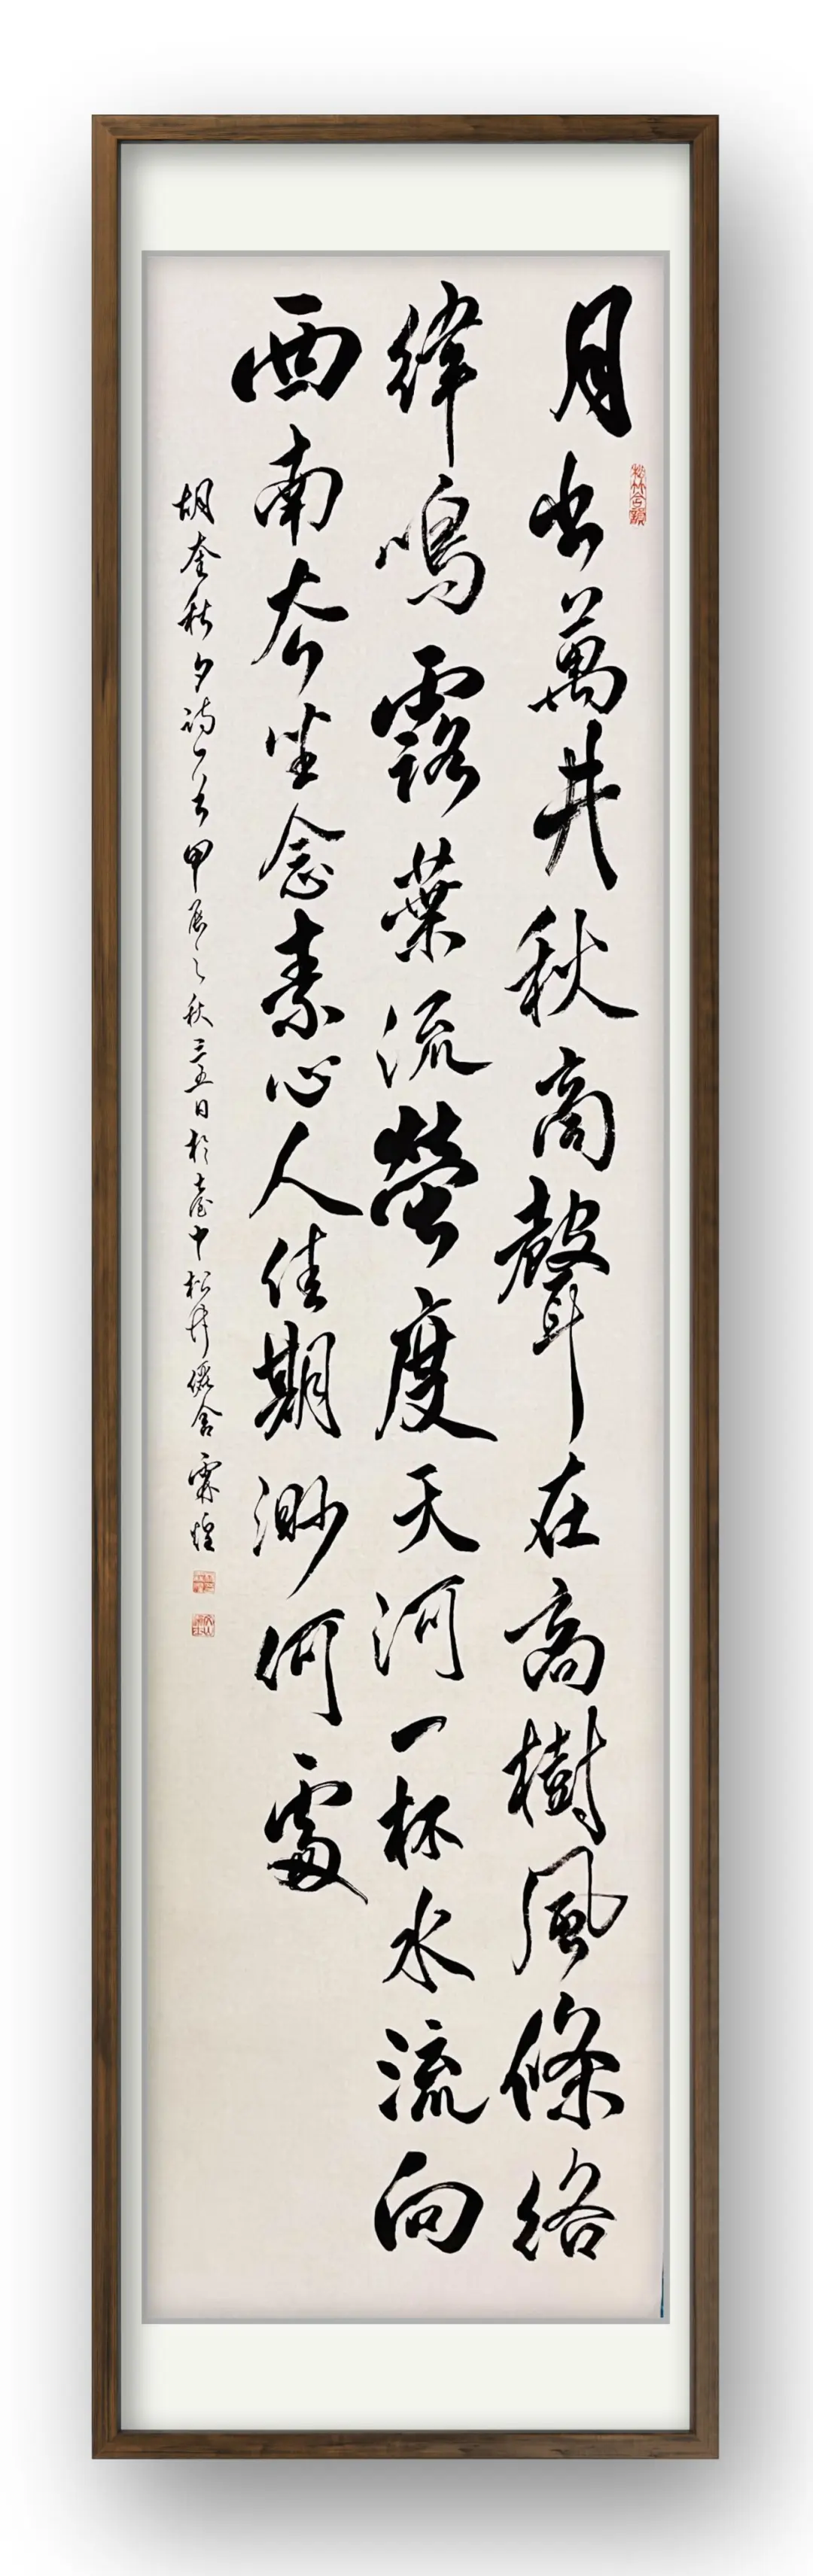 月出萬井秋商聲在高樹風條絡
緯鳴露葉流螢度天河一杯水流向
西南夯坐念素心人佳期渺何處
胡奎秋夕詩一首甲辰之秋三五日於臺中松竹僦舍霖煌